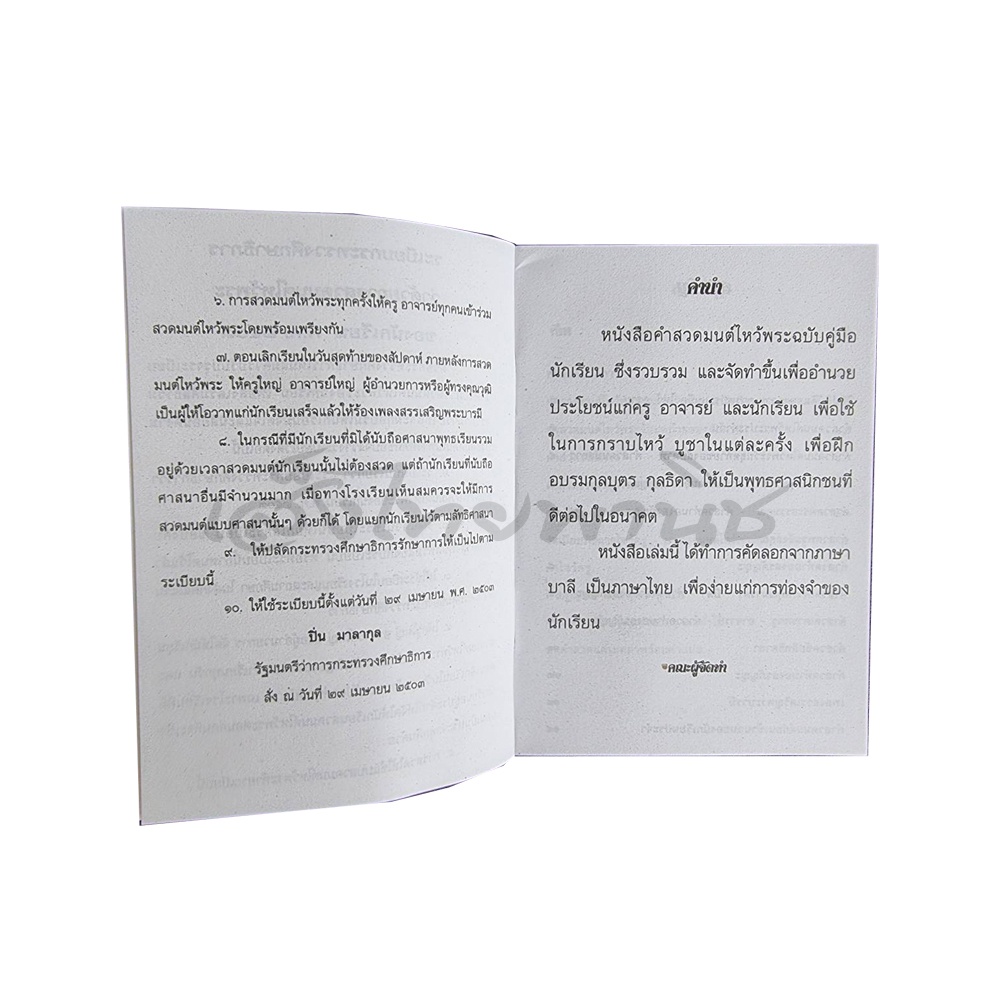 ๖. การสวดมนต์ไหว้พระทุกครั้งให้ครู อาจารย์ทุกคนเข้าร่วม
สวดมนต์ไหว้พระโดยพร้อมเพรียงกัน
๗. ตอนเลิกเรียนในวันสุดท้ายของสัปดาห์ ภายหลังการสวด
มนต์ไหว้พระ ให้ครูใหญ่ อาจารย์ใหญ่ ผู้อำนวยการหรือผู้ทรงคุณวุฒิ
เป็นผู้ให้โอวาทแก่นักเรียนเสร็จแล้วให้ร้องเพลงสรรเสริญพระบารมี
๘. ในกรณีที่มีนักเรียนที่มิได้นับถือศาสนาพุทธเรียนรวม
อยู่ด้วยเวลาสวดมนต์นักเรียนนั้นไม่ต้องสวด แต่ถ้านักเรียนที่นับถือ
ศาสนาอื่นมีจำนวนมาก เมื่อทางโรงเรียนเห็นสมควรจะให้มีการ
สวดมนต์แบบศาสนานั้นๆ ด้วยก็ได้ โดยแยกนักเรียนไว้ตามลัทธิศาสนา
๙. ให้ปลัดกระทรวงศึกษาธิการรักษาการให้เป็นไปตาม
ระเบียบนี้
๑๐. ให้ใช้ระเบียบนี้ตั้งแต่วันที่ ๒๙ เมษายน พ.ศ. ๒๕๐๓
ปิ่น มาลากุล
รัฐมนตรีว่าการกระทรวงศึกษาธิการ
สั่ง ณ วันที่ ๒๙ เมษายน ๒๕๐๓
คำนำ
หนังสือคำสวดมนต์ไหว้พระฉบับคู่มือ
นักเรียน ซึ่งรวบรวม และจัดทำขึ้นเพื่ออำนวย
ประโยชน์แก่ครู อาจารย์ และนักเรียน เพื่อใช้
ในการกราบไหว้ บูชาในแต่ละครั้ง เพื่อฝึก
อบรมกุลบุตร กุลธิดา ให้เป็นพุทธศาสนิกชนที่
ดีต่อไปในอนาคต
หนังสือเล่มนี้ ได้ทำการคัดลอกจากภาษา
บาลี เป็นภาษาไทย เพื่อง่ายแก่การท่องจำของ
นักเรียน
คณะผู้จัดทำ